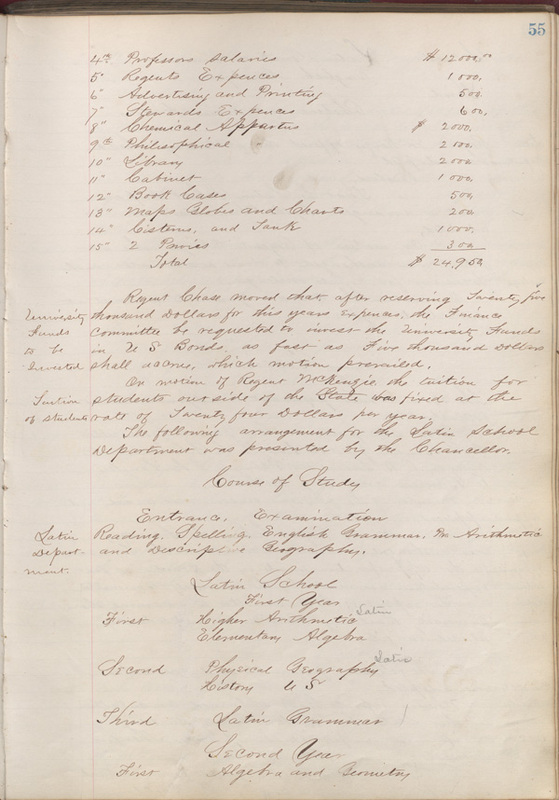 55
4th Professors Salaries $12000,00
5" Regents Expences 1000,
6" Advertising and Printing 500.
7" Stewards Expences 600,
8" Chemical Appartus $ 2000,
9th Philisophical " 2100,
10" Library 2000
11" Cabinet 1000
12" Book Cases 500,
13" Maps Globes and Charts 200,
14" Cisterns, and Tank 1000,
15" 2 Privies 300
Total $ 24,950
Regent Chase moved that after reserving Twenty five
University thousand Dollars for this years Expences, the Finance
Funds committee be requested to invest the University Funds
to be in U S Bonds, as fast as Five thousand Dollars
Invested shall accrue, which motion prevailed.
On motion of Regent McKenzie the tuition for
Tuition students outside of the State was fixed at the
of students rate of Twenty four Dollars per year.
The following arrangement for the Latin School
Department was presented by the Chancellor.
Course of Study
Entrance, Examination
Latin Reading, Spelling, English Grammar, Arithmetic
Depart- and Descriptive Geography.
ment.
Latin School
First Year
First Higher Arithmetic Latin
Elementary Algebra
Second Physical Geography Latin
History U S
Third Latin Grammar
Second Year
First Algebra and Geometry